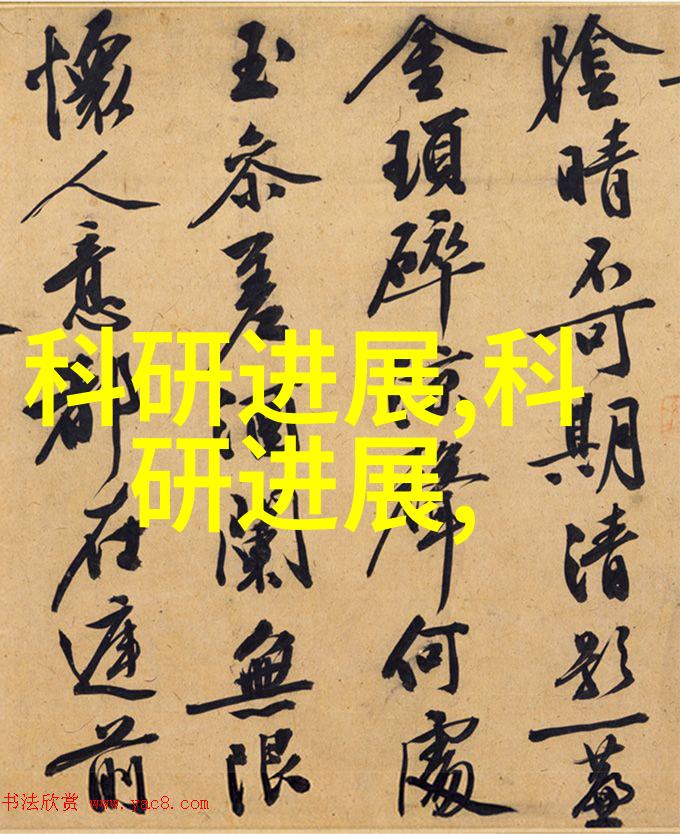 陰晴不可期清影一簾
金瑣碎涼聲何處
玉參差酒闌無限
懷人意都在庭前
科研进展,科
研进展,
书法欣赏 www.yac8.com